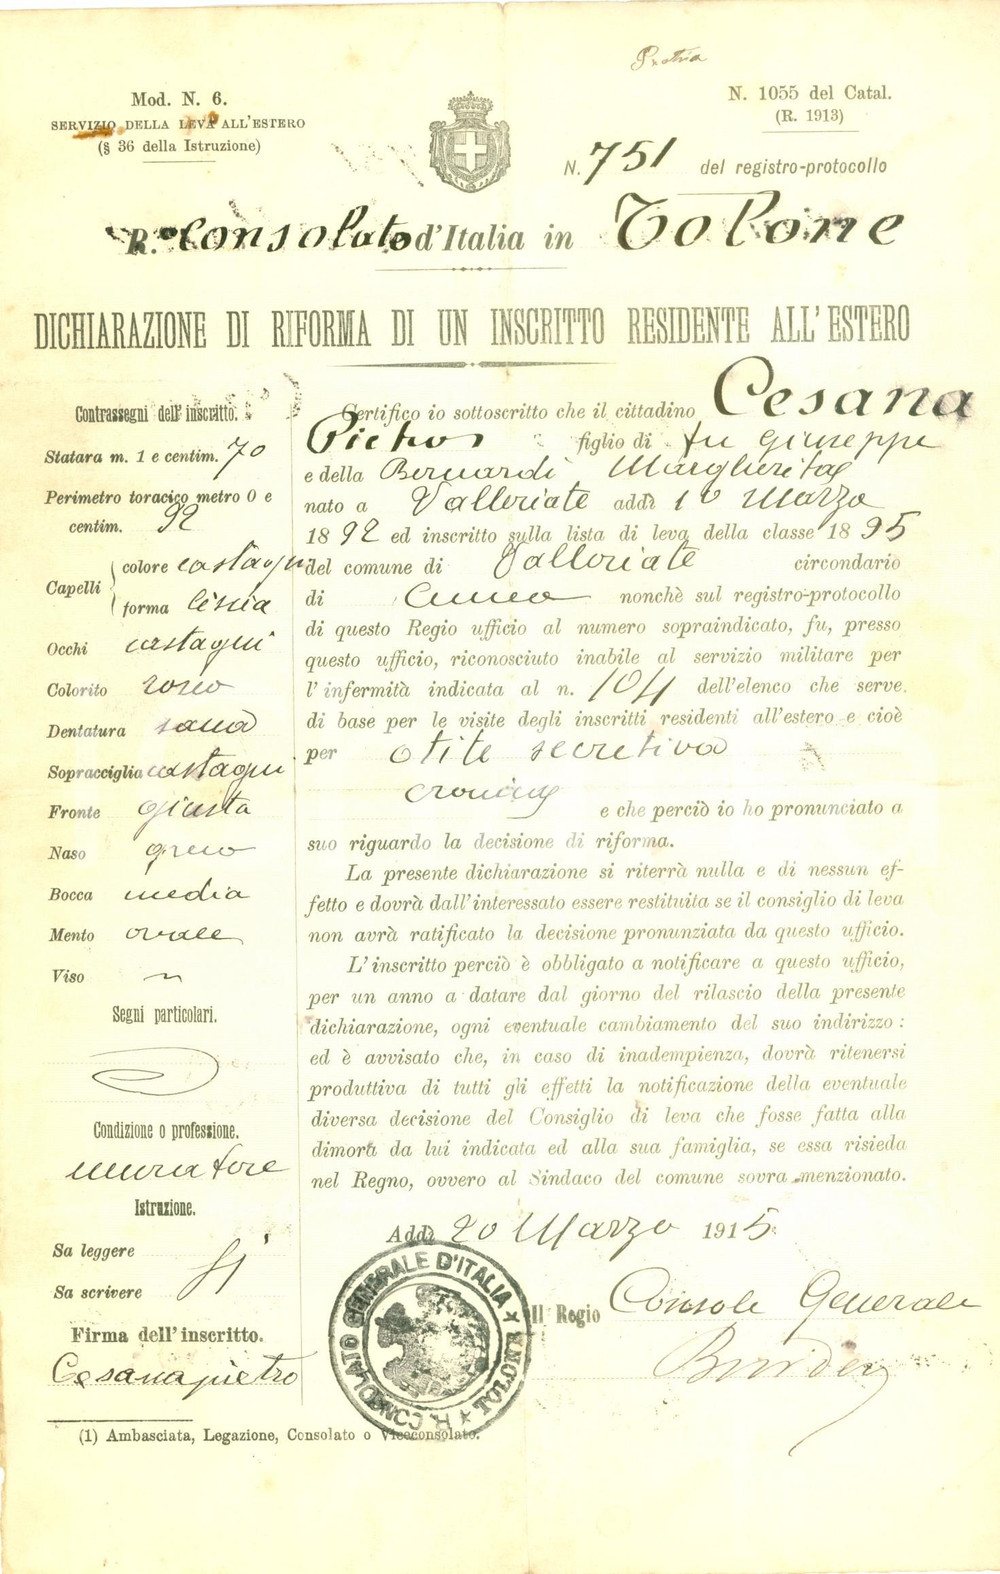 Mod. N. 6.
SERVIZIO DELLA LEVA ALL'ESTERO
(§ 36 della Istruzione)
N. 1055 del Catal.
(R. 1913)
N. 751 del registro-protocollo
R.º Consolato d'Italia in Tolone
DICHIARAZIONE DI RIFORMA DI UN INSCRITTO RESIDENTE ALL'ESTERO
Contrassegni dell'inscritto.
Statura m. 1 e centim. 70
Perimetro toracico metro 0 e
centim. 92
Capelli
colore castagni
forma liscia
Occhi castagni
Colorito roseo
Dentatura sana
Sopracciglia castagni
Fronte giusta
Naso greco
Bocca media
Mento ovale
Viso "
Segni particolari.
Condizione o professione.
muratore
Istruzione.
Sa leggere
Sa scrivere
si
Firma dell'inscritto.
Cesana pietro
Certifico io sottoscritto che il cittadino Cesana
Pietro figlio di fu Giuseppe
e della Bernardi Margherita
nato a Valloriate addì 10 Marzo
1892 ed inscritto sulla lista di leva della classe 1895
del comune di Valloriate circondario
di Cuneo nonchè sul registro-protocollo
di questo Regio ufficio al numero sopraindicato, fu, presso
questo ufficio, riconosciuto inabile al servizio militare per
l'infermità indicata al n. 104 dell'elenco che serve
di base per le visite degli inscritti residenti all'estero e cioè
per otite secretiva
cronica e che perciò io ho pronunciato a
suo riguardo la decisione di riforma.
La presente dichiarazione si riterrà nulla e di nessun ef-
fetto e dovrà dall'interessato essere restituita se il consiglio di leva
non avrà ratificato la decisione pronunziata da questo ufficio.
L'inscritto perciò è obbligato a notificare a questo ufficio,
per un anno a datare dal giorno del rilascio della presente
dichiarazione, ogni eventuale cambiamento del suo indirizzo:
ed è avvisato che, in caso di inadempienza, dovrà ritenersi
produttiva di tutti gli effetti la notificazione della eventuale
diversa decisione del Consiglio di leva che fosse fatta alla
dimora da lui indicata ed alla sua famiglia, se essa risieda
nel Regno, ovvero al Sindaco del comune sovra menzionato.
Addì 20 Marzo 1915
Il Regio Console Generale
R. CONSOLATO GENERALE D'ITALIA TOLONE
(1) Ambasciata, Legazione, Consolato o Viceconsolato.